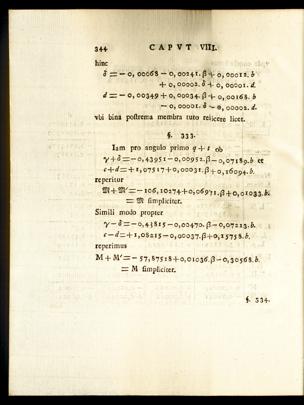 344 CAPVT VIII.
hinc
δ = − 0, 00068 − 0, 00241. β + 0, 00012. b
+ 0, 00002. δ + 0, 00001. d
d = − 0, 00349 + 0, 00034. β + 0, 00168. b
− 0, 00001. δ − 0, 00002. d.
vbi bina postrema membra tuto reiicere licet.
§. 333.
Iam pro angulo primo q + t ob
γ + δ = − 0, 43951 − 0, 00952. β − 0, 07189. b et
c + d = + 1, 07517 + 0, 00031. β + 0, 16094. b.
reperitur
M + M′ = − 106, 10274 + 0, 06971. β + 0, 01033. b.
= M simpliciter.
Simili modo propter
γ − δ = − 0, 43815 − 0, 00470. β − 0, 07213. b.
c − d = + 1, 08215 − 0, 00037. β + 0, 15758. b.
reperimus
M + M′ = − 57, 87518 + 0, 01036. β − 0, 30568. b.
= M simpliciter.
§. 334.